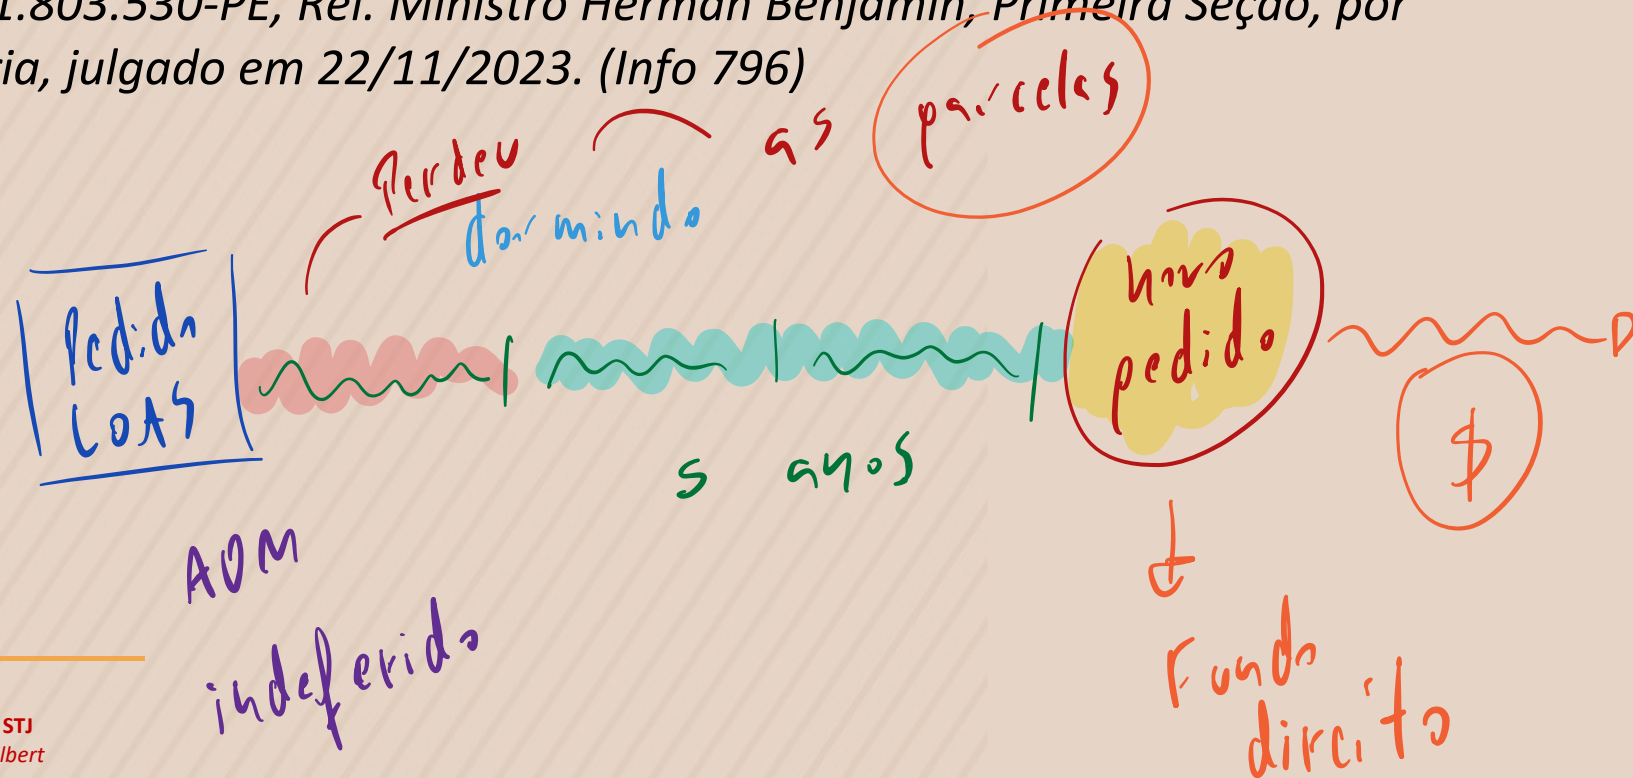 1.803.530-PE, Rel. Ministro Herman Benjamin, Primeira Seção, por
ria, julgado em 22/11/2023. (Info 796)
Perdeu as parcelas
dormindo
Pedido
LOAS
novo
pedido
$
5 anos
ADM
indeferido
Fundo
direito
STJ
lbert